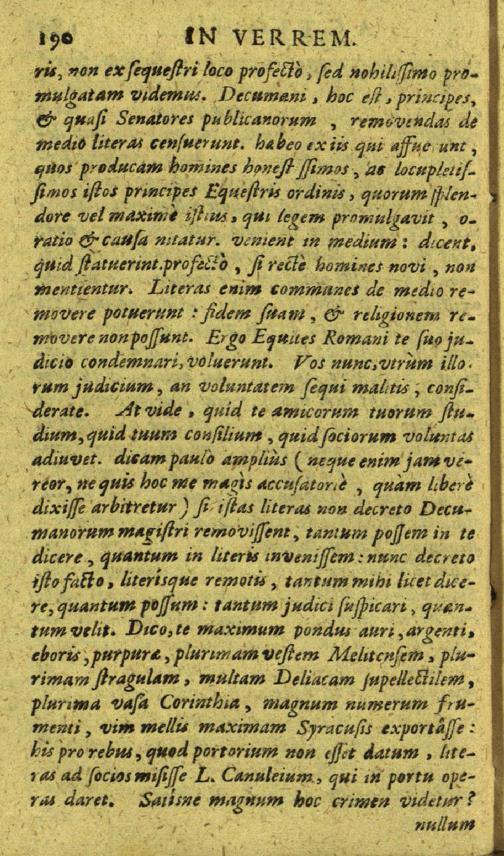 190 IN VERREM.
ris, non ex sequestri loco profectò, sed nobilissimo pro-
mulgatam videmus. Decumani, hoc est, principes,
& quasi Senatores publicanorum, removendas de
medio literas censuerunt. habeo ex iis qui affue unt,
quos producam homines honest ssimos, ac locupletis-
simos istos principes Equestris ordinis, quorum splen-
dore vel maximè istius, qui legem promulgavit, o-
ratio & causa nitatur. venient in medium: dicent,
quid statuerint. profectò, si rectè homines novi, non
mentientur. Literas enim communes de medio re-
movere potuerunt: fidem suam, & religionem re-
movere non possunt. Ergo Equites Romani te suo ju-
dicio condemnari, voluerunt. Vos nunc, utrùm illo-
rum judicium, an voluntatem sequi malitis, consi-
derate. At vide, quid te amicorum tuorum stu-
dium, quid tuum consilium, quid sociorum voluntas
adiuvet. dicam paulo ampliùs (neque enim jam ve-
reor, ne quis hoc me magis accusatoriè, quàm liberè
dixisse arbitretur) si istas literas non decreto Decu-
manorum magistri removissent, tantum possem in te
dicere, quantum in literis invenissem: nunc decreto
isto facto, literisque remotis, tantum mihi licet dice-
re, quantum possum: tantum judici suspicari, quan-
tum velit. Dico, te maximum pondus auri, argenti,
eboris, purpuræ, plurimam vestem Melitensem, plu-
rimam stragulam, multam Deliacam supellectilem,
plurima vasa Corinthia, magnum numerum fru-
menti, vim mellis maximam Syracusis exportâsse:
his pro rebus, quod portorium non esset datum, lite-
ras ad socios misisse L. Canuleium, qui in portu ope-
ras daret. Satisne magnum hoc crimen videtur?
nullum